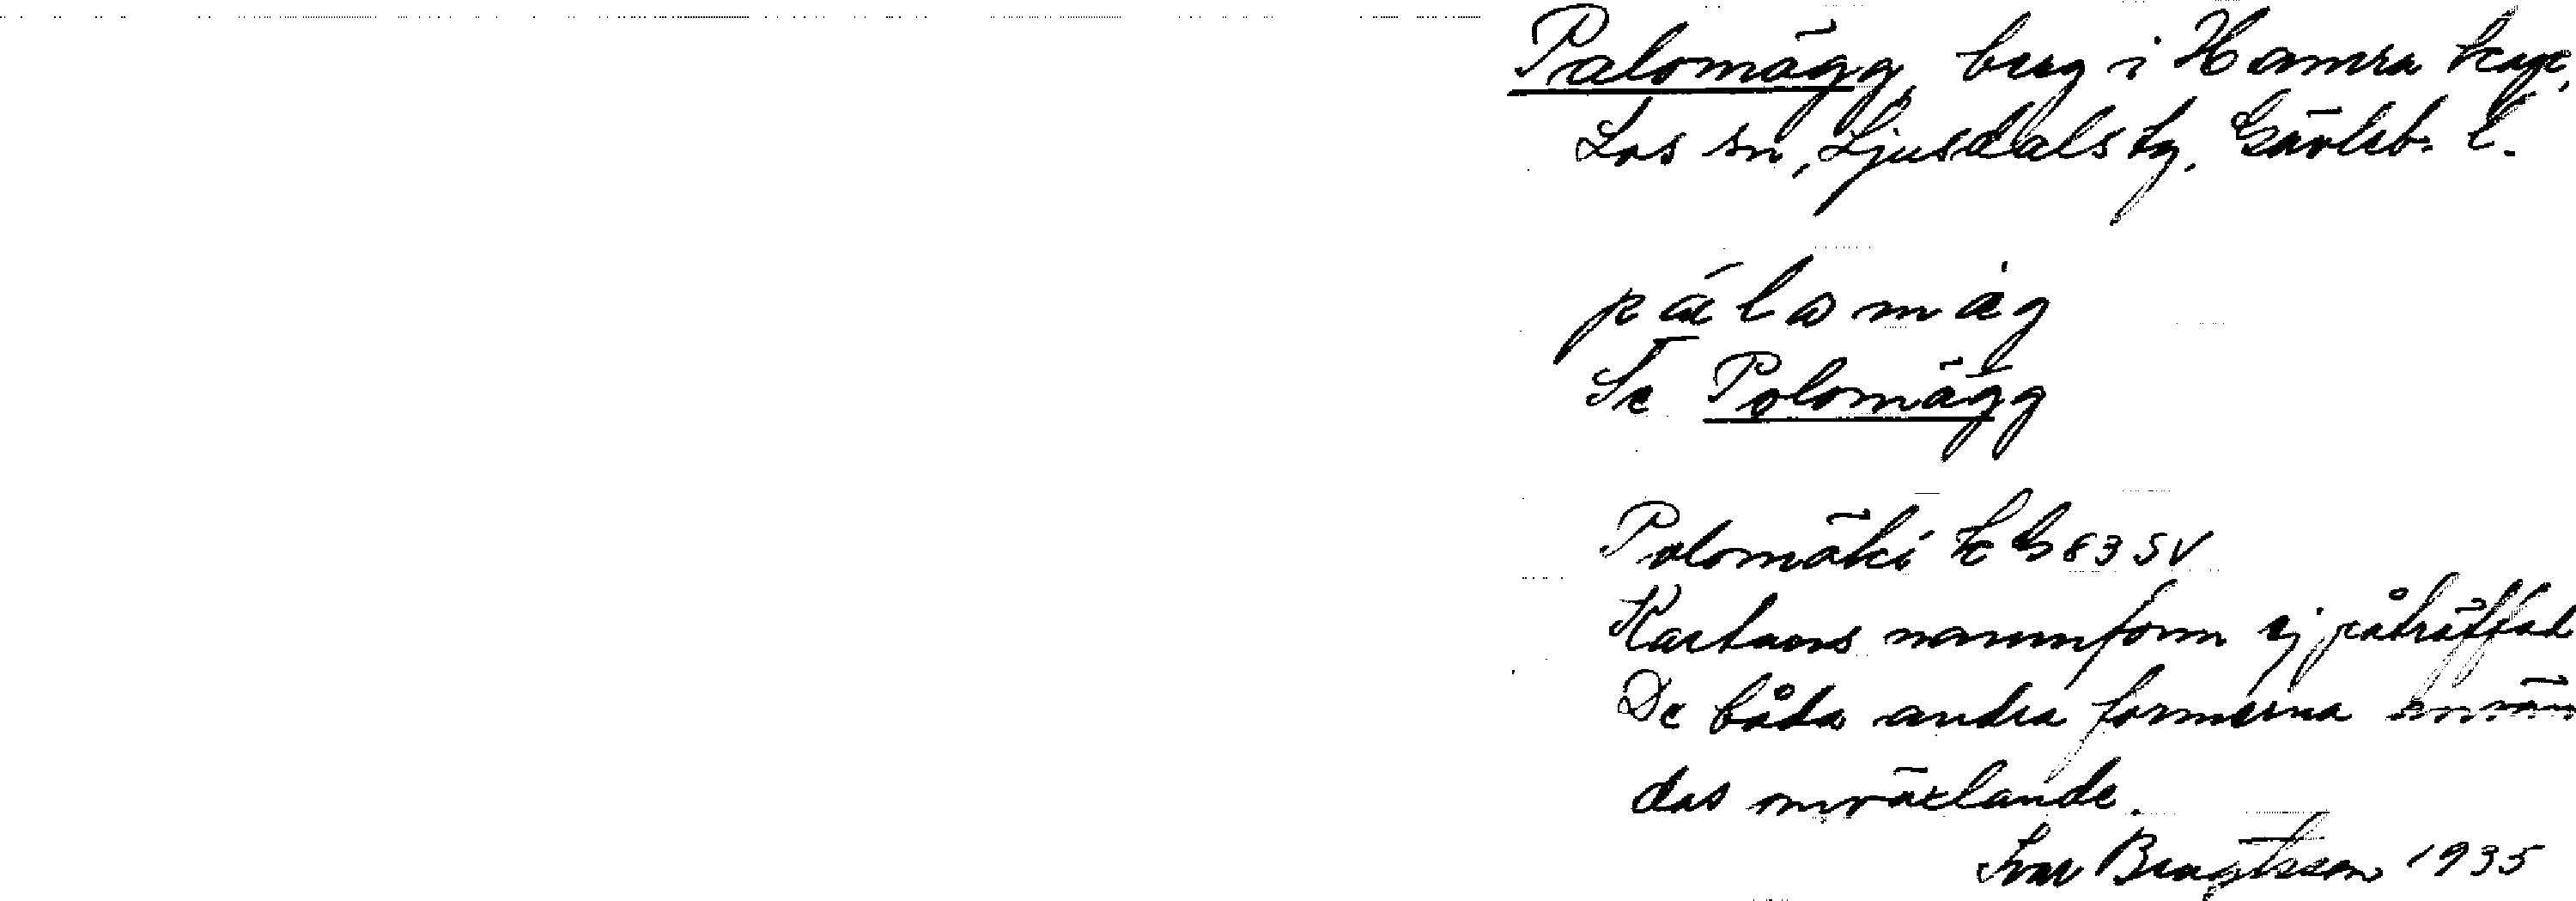 Palomägg, berg i Hamra kap.,
Los sn, Ljusdals tg. Gävleb. l.
pálomäg
Se Polomägg
Polomäki k b 83 SV
Kartans namnform ej påträffad
De båda andra formerna använ
das omväxlande.
Ivar Bengtsson 1935